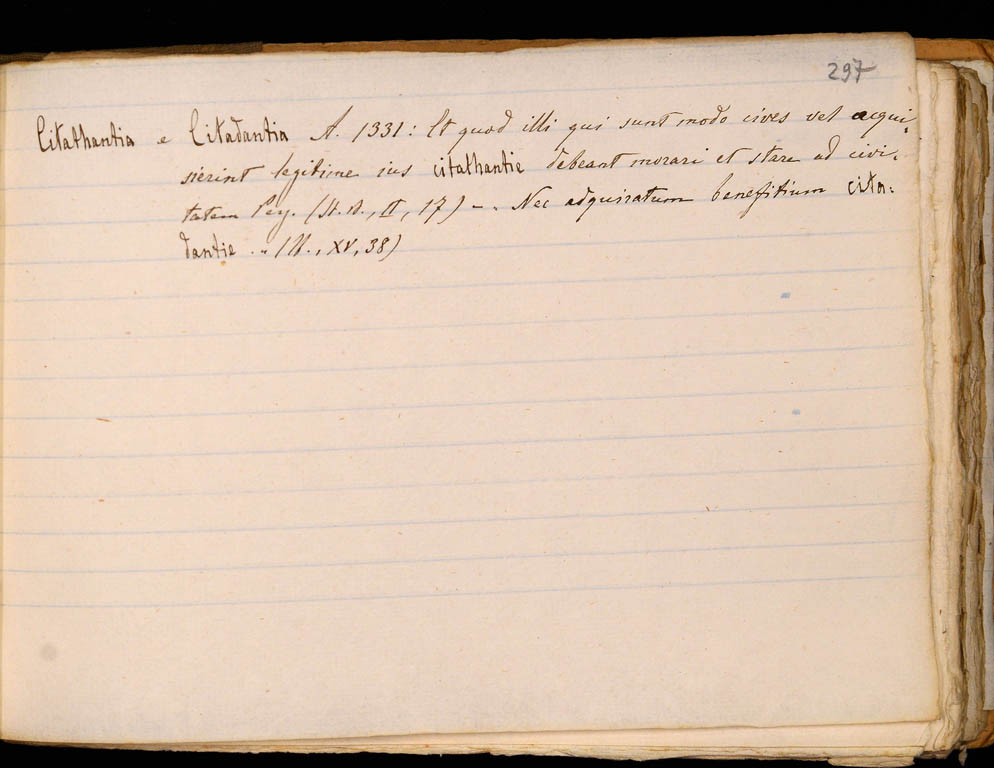 297
Citathantia e Citadantia A. 1331: Et quod illi qui sunt modo cives vel acqui-
sierint legitime ius citathantie debeant morari et stare ad civi-
tatem Pey. (St. N., II, 17) - . Nec adquiratum benefitium cita-
dantie .. (N., XV, 38)